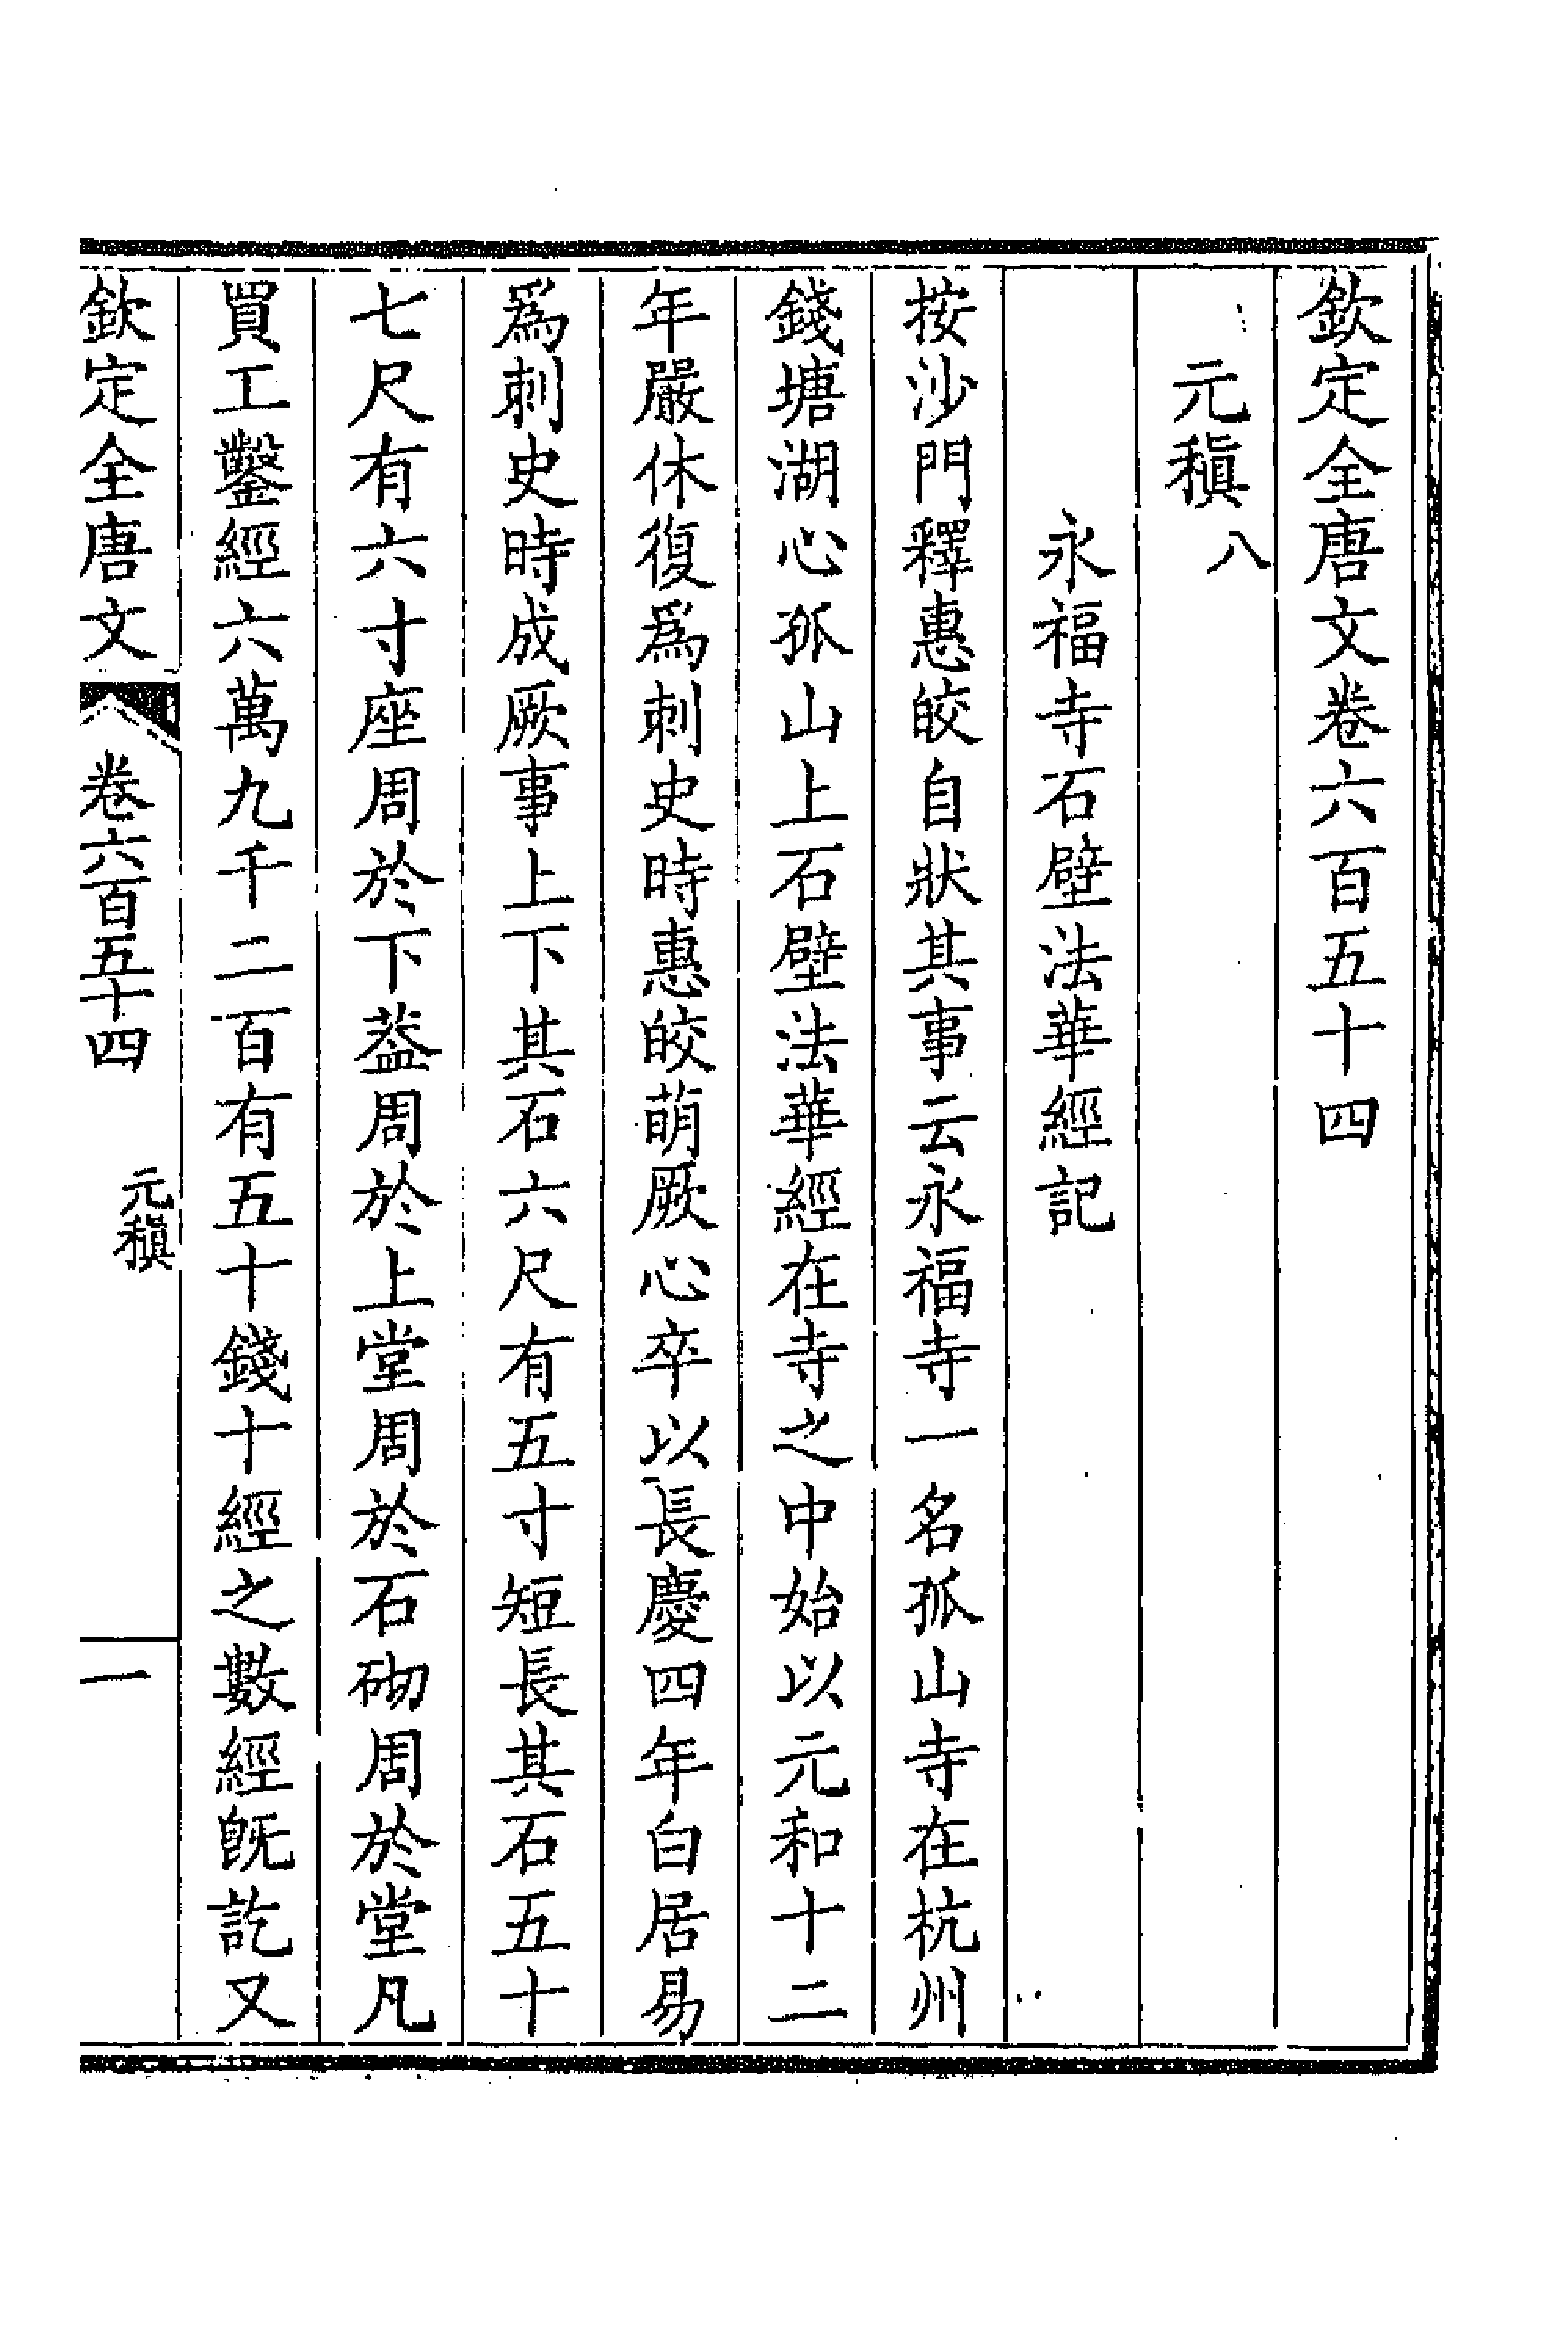 欽定全唐文卷六百五十四
元稹八
永福寺石壁法華經記
按沙門釋惠皎自狀其事云永福寺一名孤山寺在杭州
錢塘湖心孤山上石壁法華經在寺之中始以元和十二
年嚴休復爲刺史時惠皎萌厥心卒以長慶四年白居易
爲刺史時成厥事上下其石六尺有五寸短長其石五十
七尺有六寸座周於下葢周於上堂周於石砌周於堂凡
買工鑿經六萬九千二百有五十錢十經之數經旣訖又
欽定全唐文 卷六百五十四 元稹 一